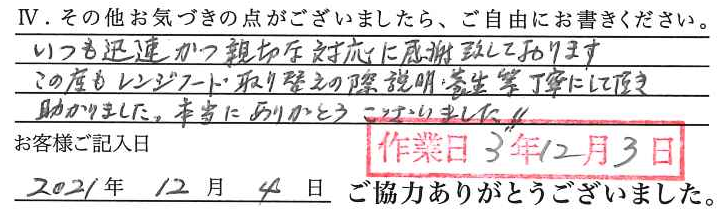 Ⅳ．その他お気づきの点がございましたら、ご自由にお書きください。
いつも迅速かつ親切な対応に感謝致しております
この度もレンジフード取り替えの際説明・養生等丁寧にして頂き
助かりました。本当にありがとうございました!!
お客様ご記入日
作業日 3年12月3日
2021年 12月 4日 ご協力ありがとうございました。